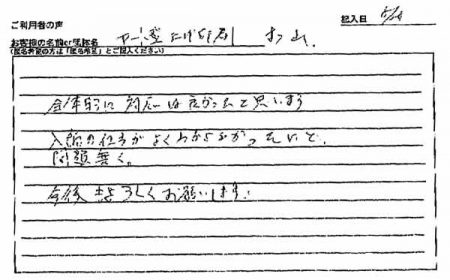 ご利用者の声
記入日 5/20
お客様の名前or匿名名
(匿名希望の方は「匿名希望」とご記入ください)
全体的に対応は良かったと思います
入稿の仕方がよくわからなかったけど、
問題無く。
今後もよろしくお願いします!